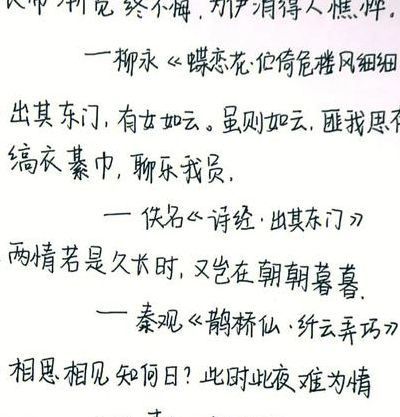 衣带渐宽终不悔,为伊消得人憔悴。
—柳永《蝶恋花·伫倚危楼风细细
出其东门,有女如云。虽则如云,匪我思存
缟衣綦巾,聊乐我员.
— 佚名《诗经·出其东门》
两情若是久长时,又岂在朝朝暮暮.
— 秦观《鹊桥仙·纤云弄巧》
相思相见知何日?此时此夜难为情